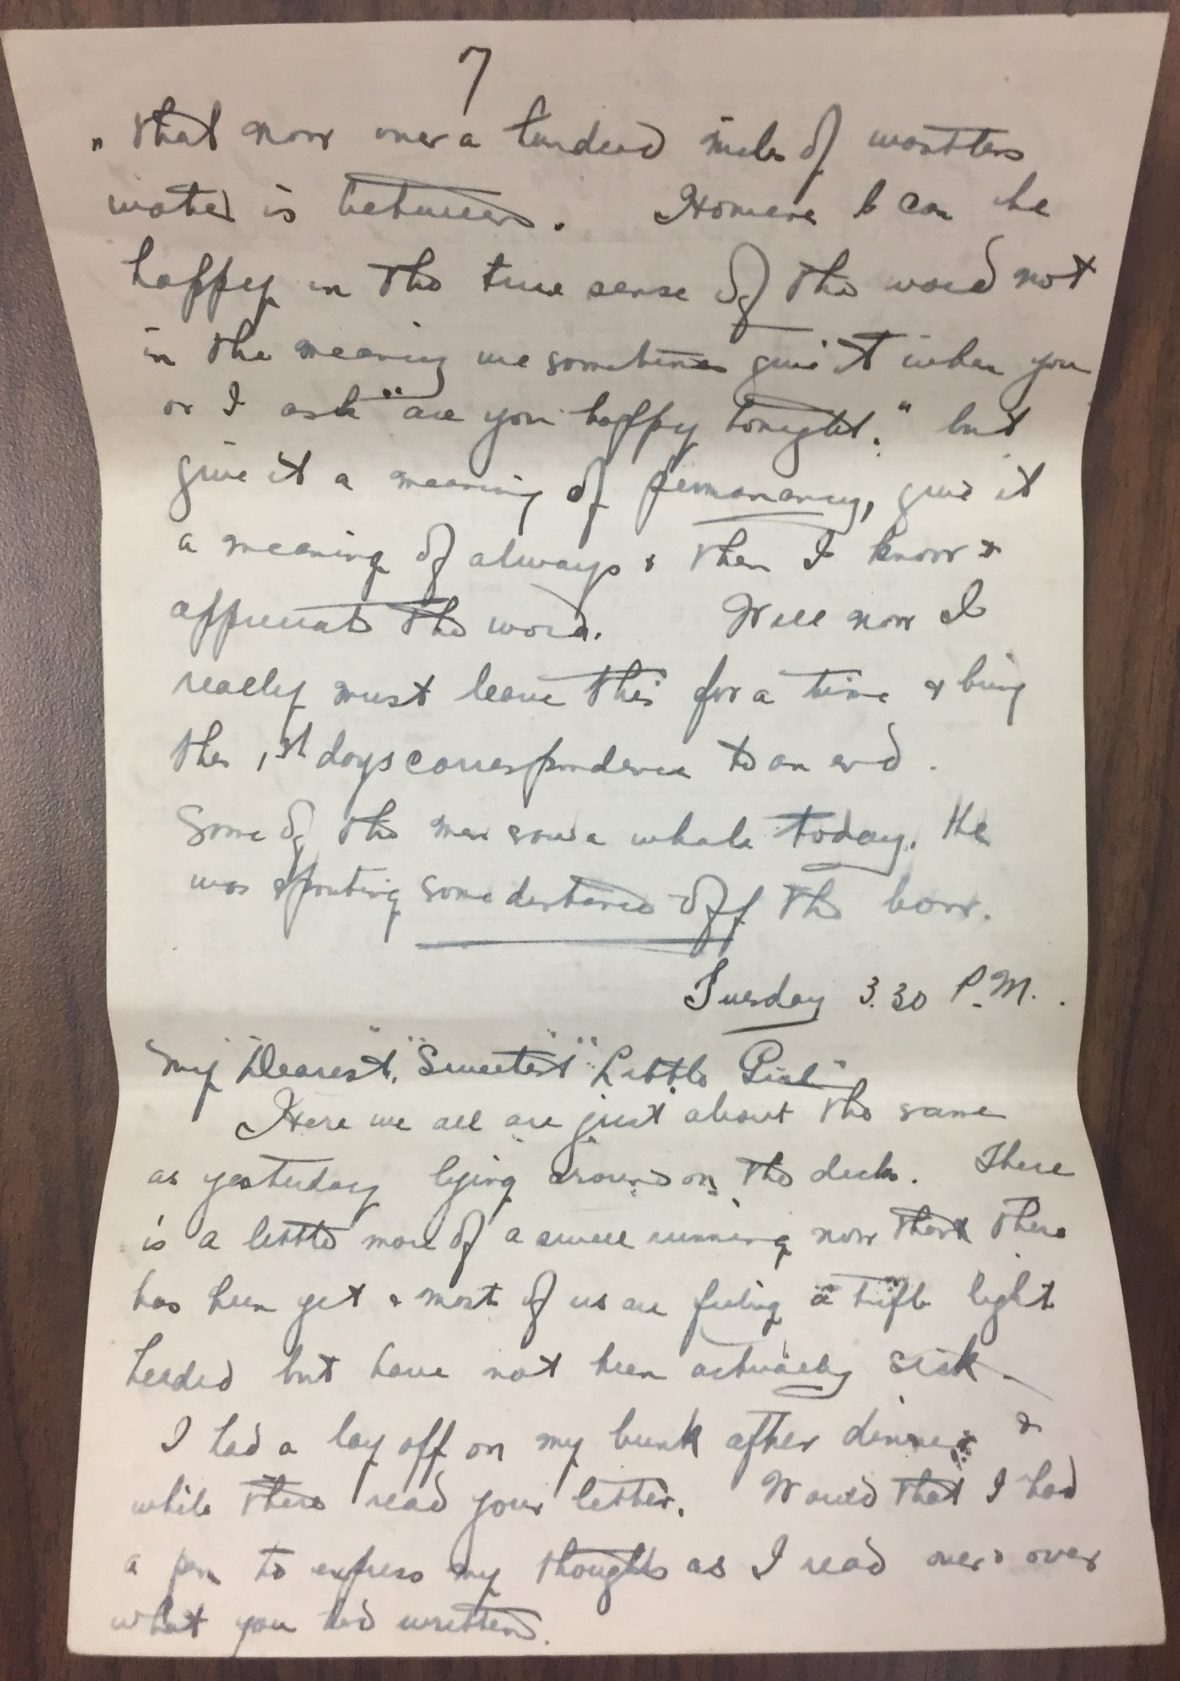 7
that now over a hundred miles of
water is between. However I can be
happy in the true sense of the word not
in the meaning we sometimes give it when you
or I ask "are you happy tonight." but
give it a meaning of permanancy, give it
a meaning of always & then I know &
appreciate the word. Well now I
really must leave this for a time & bring
the 1st days correspondence to an end.
Some of the men saw a whale today. He
was spouting some distance off the bow.
Tuesday 3.30 P.M.
My "Dearest", "Sweetest" "Little Girl"
Here we all are just about the same
as yesterday lying around on the deck. There
is a little more of a swell running now than there
has been yet & most of us are feeling a trifle light
headed but have not been actually sick.
I had a lay off on my bunk after dinner &
while there read your letter. Would that I had
a pen to express my thoughts as I read over & over
what you had written.